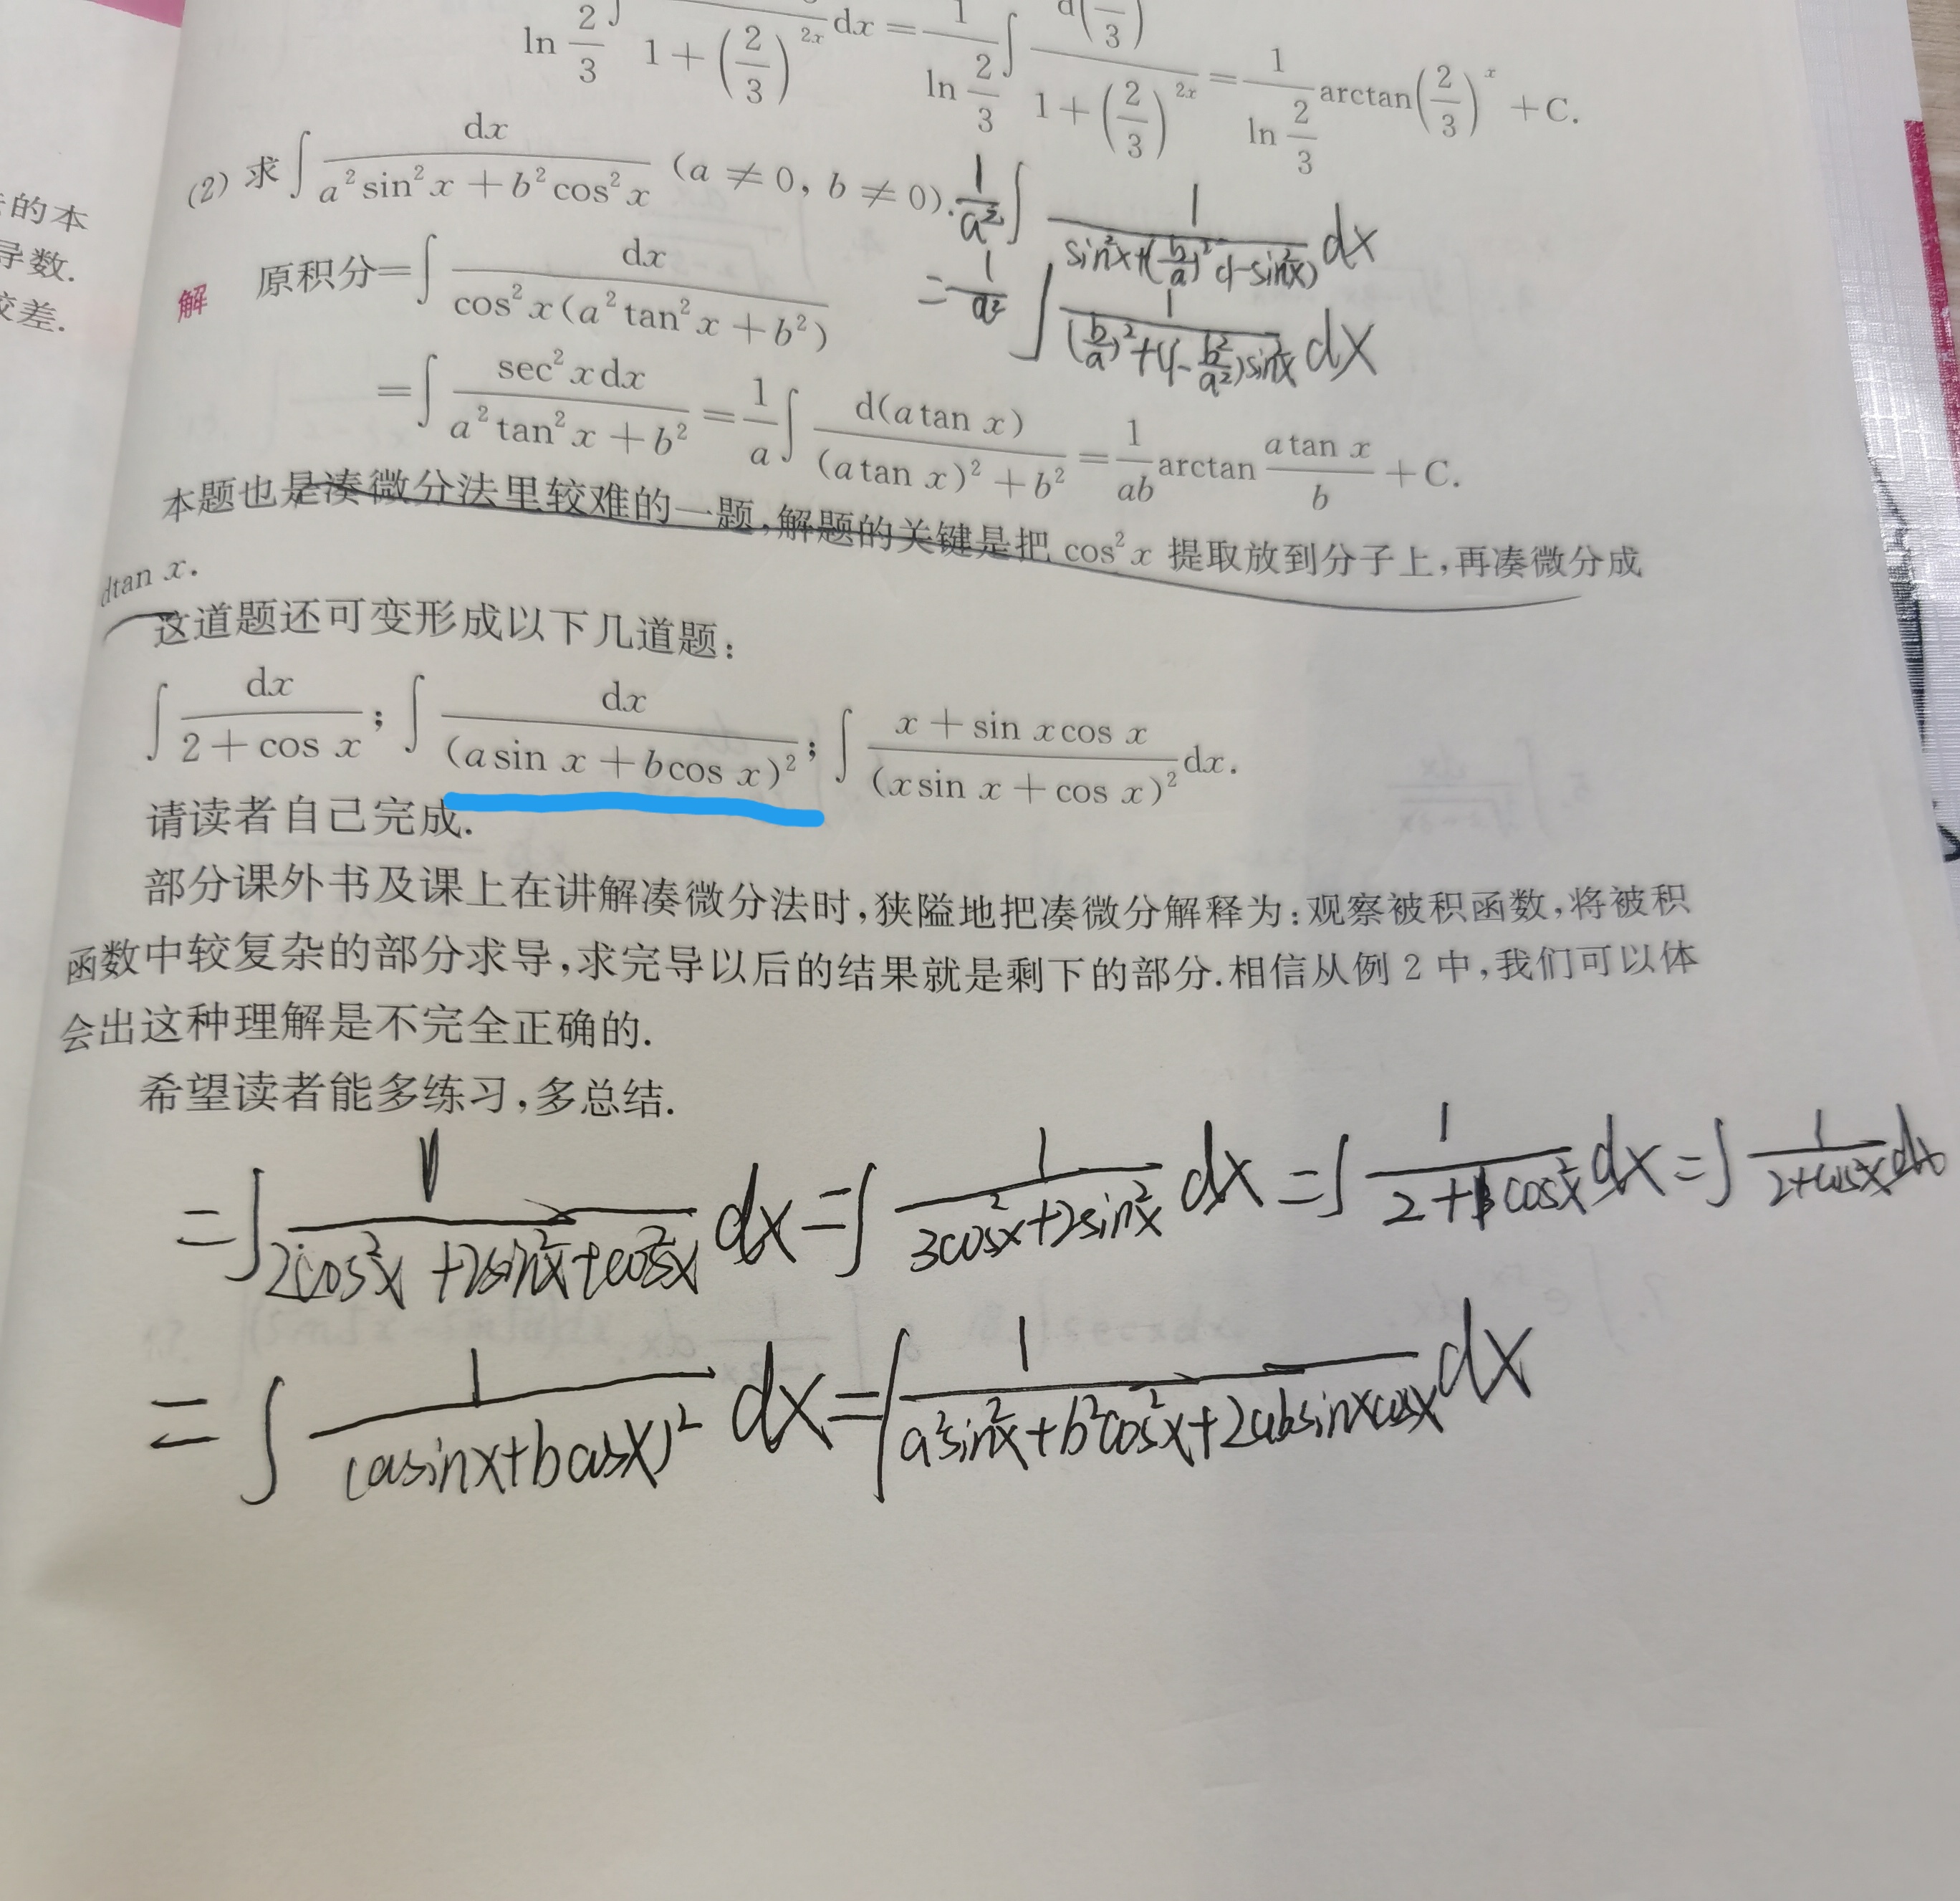 ln 2/3 ∫ 1+(2/3)^{2x} dx = 1/(ln 2/3) ∫ d(/3)/(1+(2/3)^{2x}) = 1/(ln 2/3) arctan(2/3)^x +C.
(2) 求∫ dx/(a²sin²x+b²cos²x) (a≠0, b≠0). 1/a² ∫ 1/(sin²x+(b/a)²(1-sin²x)) dx
解 原积分=∫ dx/(cos²x(a²tan²x+b²))
= 1/a² ∫ 1/((b/a)²+(1-b²/a²)sin²x) dx
=∫ sec²xdx/(a²tan²x+b²) = 1/a ∫ d(atan x)/((atan x)²+b²) = 1/ab arctan (atan x)/b +C.
本题也是凑微分法里较难的一题,解题的关键是把 cos²x 提取放到分子上,再凑微分成
dtan x.
这道题还可变形成以下几道题:
∫ dx/(2+cos x); ∫ dx/(asin x+bcos x)²; ∫ (x+sin xcos x)/(xsin x+cos x)² dx.
请读者自己完成.
部分课外书及课上在讲解凑微分法时,狭隘地把凑微分解释为:观察被积函数,将被积
函数中较复杂的部分求导,求完导以后的结果就是剩下的部分.相信从例 2 中,我们可以体
会出这种理解是不完全正确的.
希望读者能多练习,多总结.
=∫ 1/(2cos²x+2sin²x+cos²x) dx=∫ 1/(3cos²x+2sin²x) dx=∫ 1/(2+cos²x) dx=∫ 1/(2+cos²x) dx
=∫ 1/(asinx+bcosx)² dx=∫ 1/(a²sin²x+b²cos²x+2absinxcosx) dx
的本
导数.
较差.